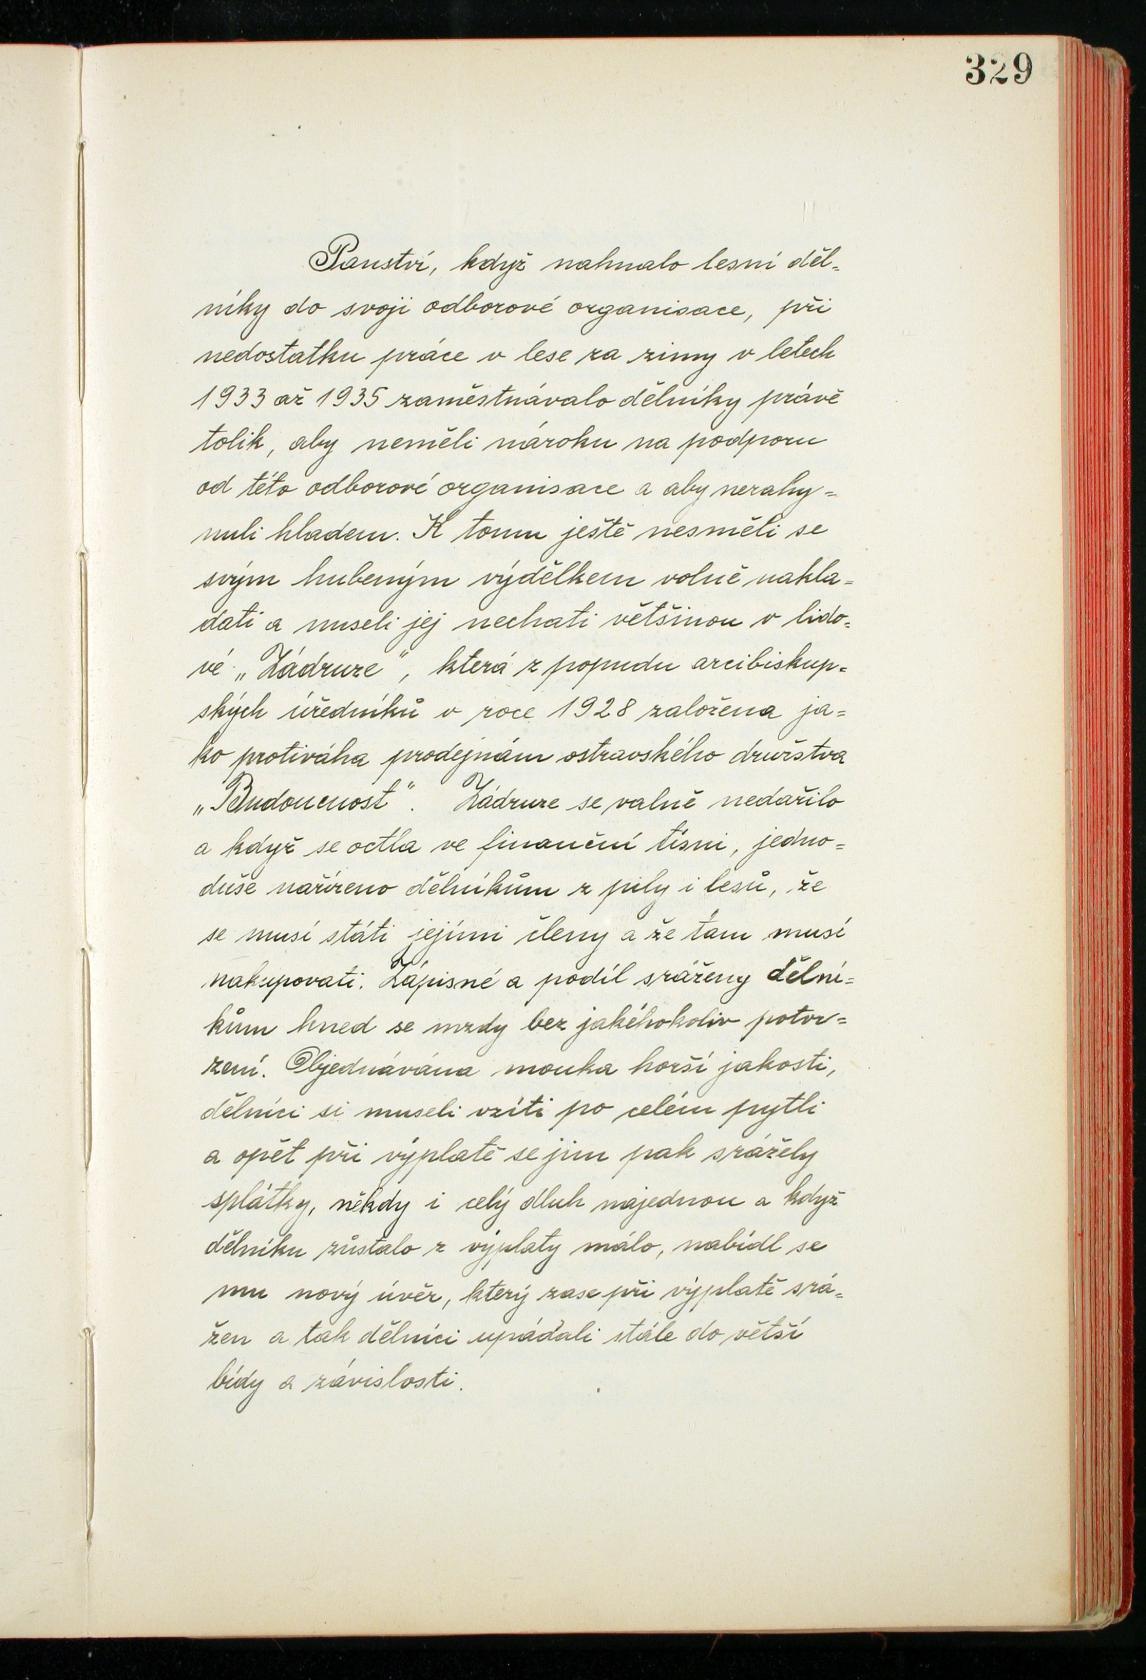 329
Panství, když nahnalo lesní děl=
níky do svojí odborové organisace, při
nedostatku práce v lese za zimy v letech
1933 až 1935 zaměstnávalo dělníky právě
tolik, aby neměli nároku na podporu
od této odborové organisace a aby nezahy=
nuli hladem. K tomu ještě nesměli se
svým hubeným výdělkem volně nakla=
dati a museli jej nechati většinou v lido=
vé „Zádruze", která z popudu arcibiskup=
ských úředníků v roce 1928 založena ja=
ko protiváha prodejnám ostravského družstva
„Budoucnost". Zádruze se valně nedařilo
a když se octla ve finanční tísni, jedno=
duše nařízeno dělníkům z pily i lesů, že
se musí státi jejími členy a že tam musí
nakupovati. Zápisné a podíl sráženy dělní=
kům hned se mzdy bez jakéhokoliv potvr=
zení. Objednávána mouka horší jakosti,
dělníci si museli vzíti po celém pytli
a opět při výplatě se jim pak srážely
splátky, někdy i celý dluh najednou a když
dělníku zůstalo z výplaty málo, nabídl se
mu nový úvěr, který zase při výplatě srá=
žen a tak dělníci upádali stále do větší
bídy a závislosti.